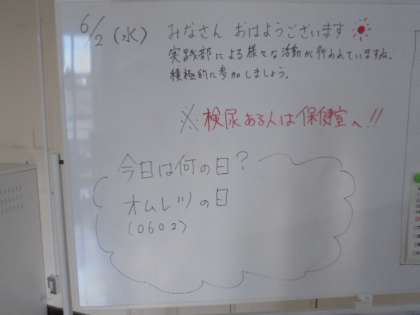 6/2 (水) みなさん おはようございます
実践部による様々な活動が行われていますね。
積極的に参加しましょう。
※検尿ある人は保健室へ!!
今日は何の日?
オムレツの日
(0602)